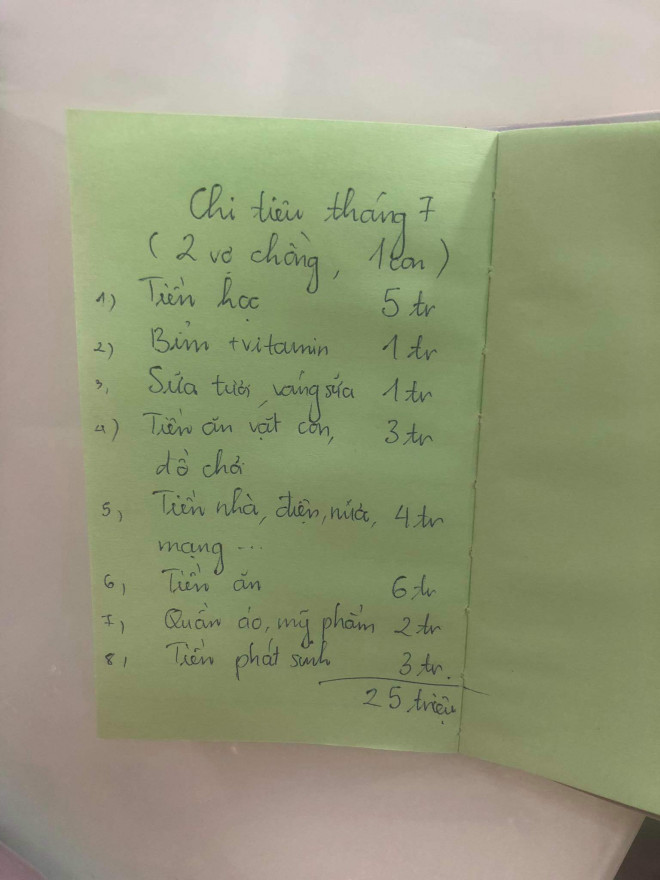 Chi tiêu tháng 7
( 2 vợ chồng, 1 con )
1) Tiền học 5 tr
2) Bỉm + vitamin 1 tr
3, Sữa tươi, váng sữa 1 tr
4) Tiền ăn vặt con, 3 tr
đồ chơi
5, Tiền nhà, điện, nước, 4 tr
mạng ...
6, Tiền ăn 6 tr
7, Quần áo, mỹ phẩm 2 tr
8, Tiền phát sinh 3 tr.
25 triệu